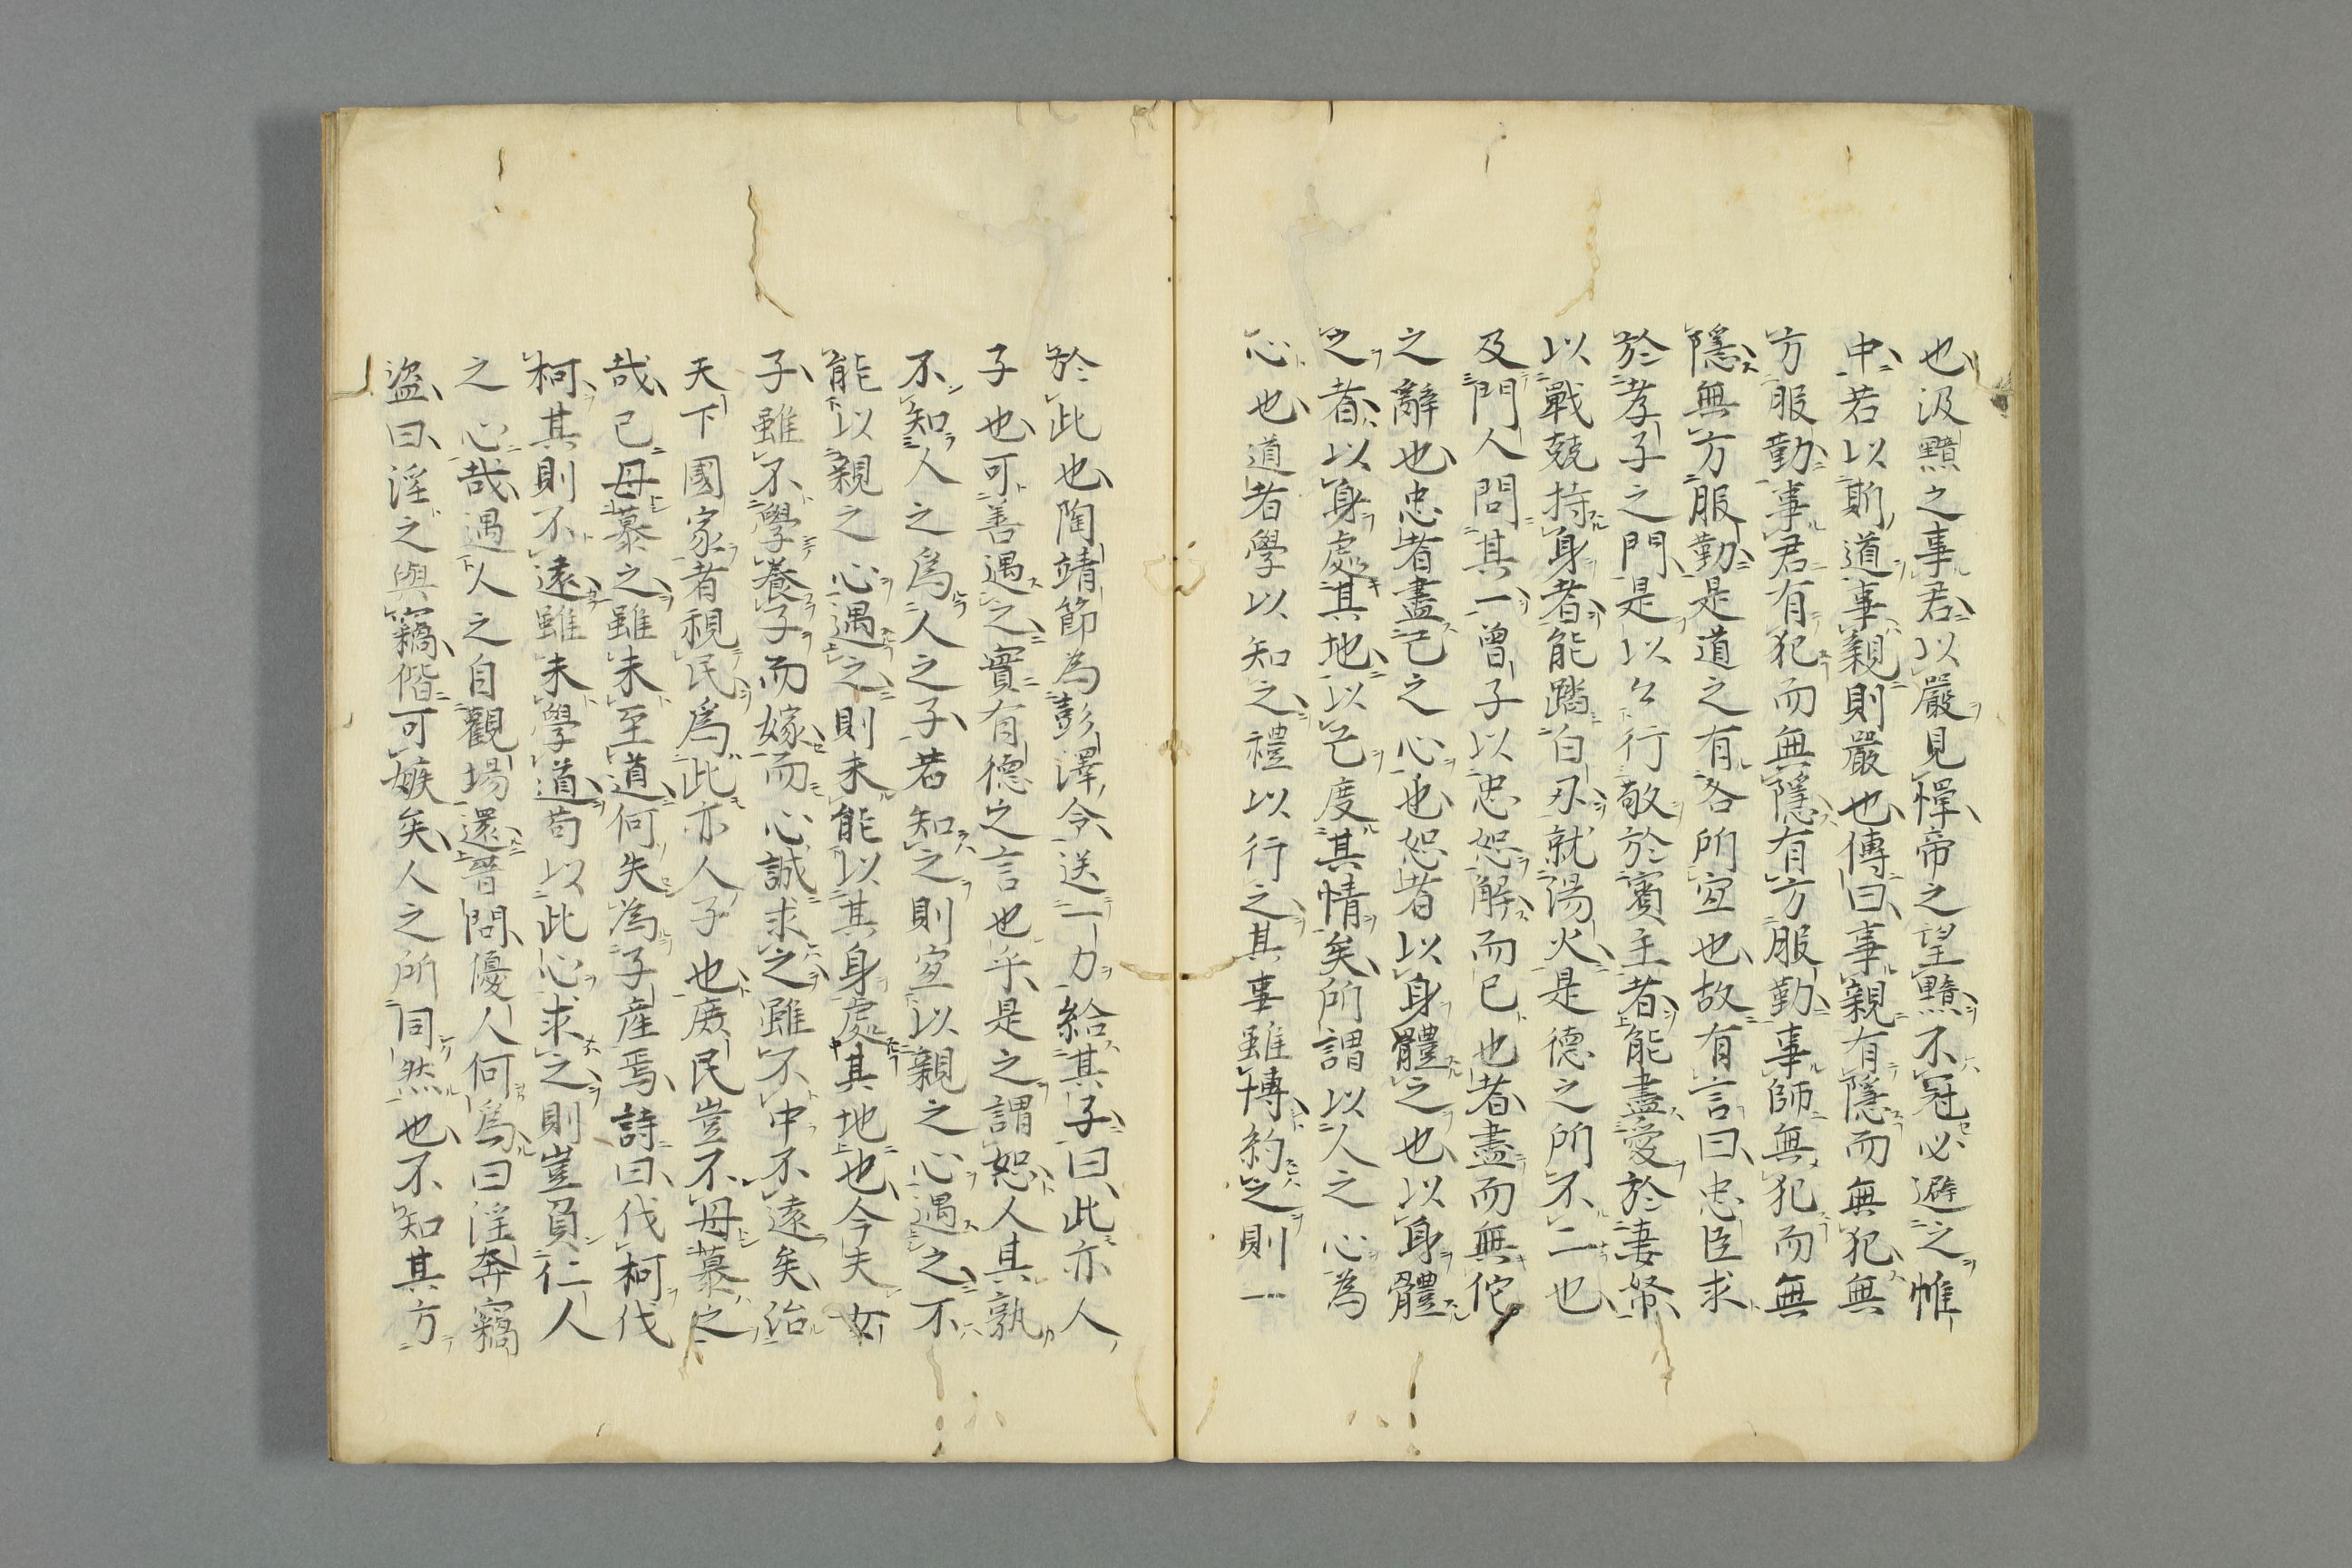 也汲黯之事君以嚴見憚帝之望黯不冠必避之惟
中若以斯道事親則嚴也傳曰事親有隱而無犯無
方服勤事君有犯而無隱有方服勤事師無犯而無
隱無方服勤是道之有各所宜也故有言曰忠臣求
於孝子之門是以公行敬於賓主者能盡愛於妻帑
以戰兢持身者能踏白刃就湯火是德之所不二也
及門人問其一曾子以忠恕解而已也者盡而無佗
之辭也忠者盡己之心也恕者以身體之也以身體
之者以身處其地以己度其情矣所謂以人之心為
心也道者學以知之禮以行之其事雖博約之則一
於此也陶靖節為彭澤令送一力給其子曰此亦人
子也可善遇之實有德之言也乎是之謂恕人其孰
不知人之爲人之子若知之則宜以親之心遇之不
能以親之心遇之則未能以其身處其地也今夫女
子雖不學養子而嫁而心誠求之雖不中不遠矣治
天下國家者視民爲此亦人子也庶民豈不母慕之
哉己母慕之雖未至道何失為子産焉詩曰伐柯伐
柯其則不遠雖未學道苟以此心求之則豈負仁人
之心哉遇人之自觀場還晋問優人何爲曰淫奔竊
盗曰淫之與竊偕可嫉矣人之所同然也不知其方